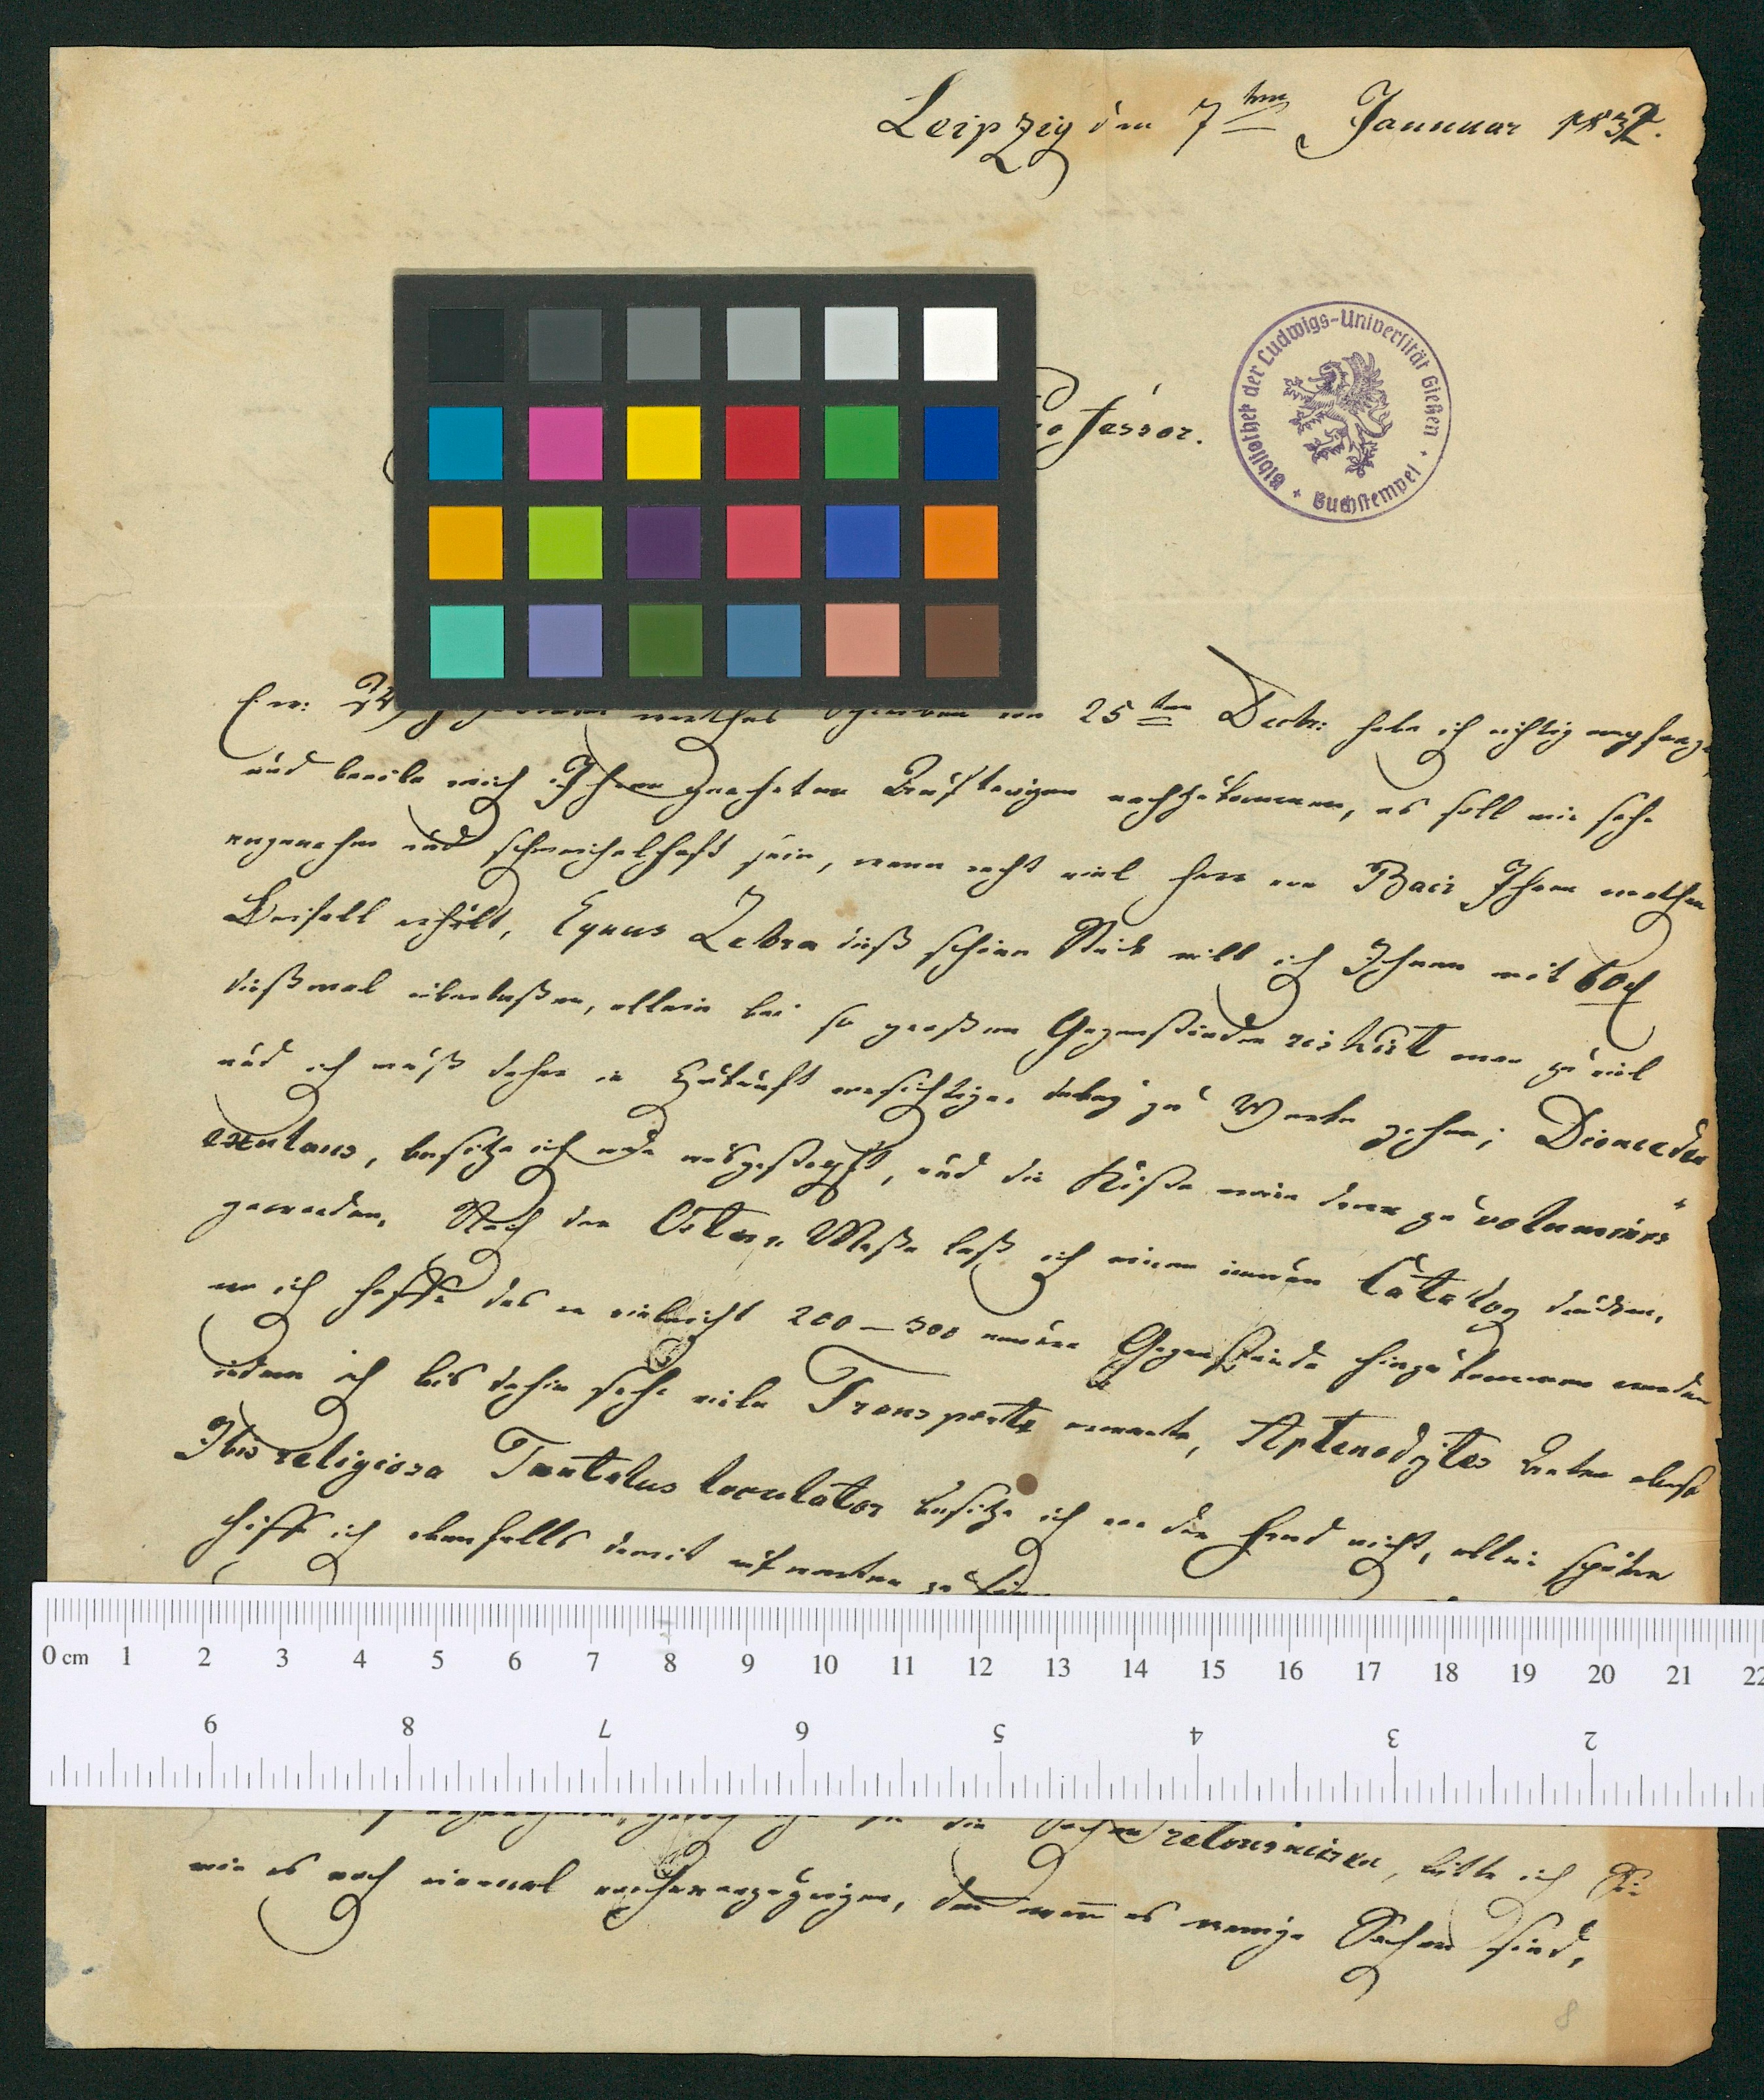 Leipzig den 7ten Januar 1832.
Bibliothek der Ludwigs-Universität Gießen
+ Buchstempel +
fessor.
Ew: werthes Schreiben vom 25ten Decbr: habe ich richtig empfang
und beeile mich Ihren geehrten Aufträgen nachzukommen, es soll mir sehr
angenehm und schmeichelhaft sein, wenn recht viel Ihren werthen
Beifall erhält, Equus Zebra dieß schöne Stück will ich Ihnen mit 60
dießmal überlaßen, allein bei so großen Gegenständen riskirt man zu viel
und ich muß daher in Zukunft vorsichtiger dabey zu Werke gehen; Diomedea
exulans, besitze ich ausgestopft, und die Kiste wäre dann zu voluminös
geworden. Nach der Oster Meße laß ich einen neuen Catalog drucken,
wo ich hoffe das vieleicht 200 – 300 neuere Gegenstände hinzukommen werden
indem ich bis dahin sehr viele Transporte erwarte, Aptenodytes
Ibis religiosa Tantalus loculator besitze ich vor der Hand nicht, allein später
hoffe ich ebenfalls damit aufwarten zu
0 cm 1 2 3 4 5 6 7 8 9 10 11 12 13 14 15 16 17 18 19 20 21 22
9 8 7 6 5 4 3 2
die Sachen retourniren, bitte ich Sie
mir es noch einmal anzuzeigen, denn wenn es wenige Sachen sind,
8